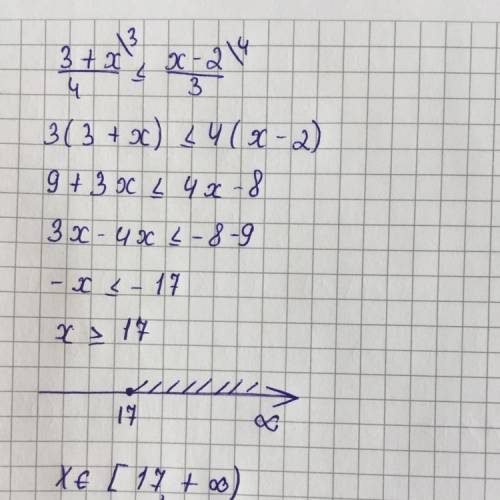 3 + x\3 / 4 ≤ x - 2\4 / 3
3(3 + x) ≤ 4(x - 2)
9 + 3x ≤ 4x - 8
3x - 4x ≤ - 8 - 9
- x ≤ - 17
x ≥ 17
17 ∞
x ∈ [17, + ∞)